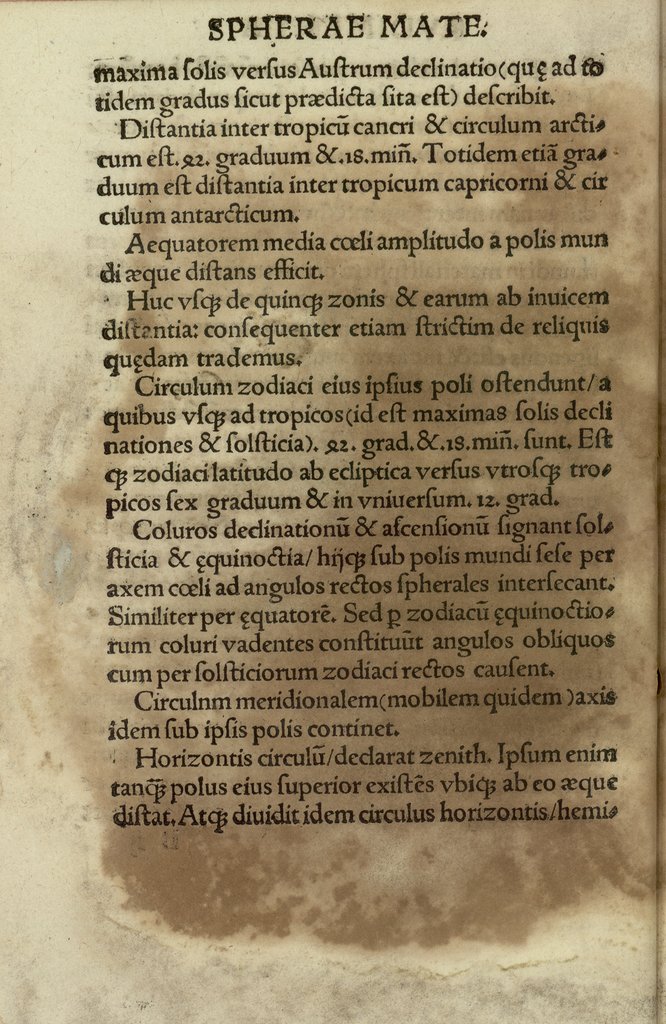 SPHERAE MATE.
maxima ſolis verſus Auſtrum declinatio(quę ad to
tidem gradus ſicut prædicta ſita eſt) deſcribit.
Diſtantia inter tropicū cancri & circulum arcti⸗
cum eſt.42. graduum &.18.miñ. Totidem etiā gra⸗
duum eſt diſtantia inter tropicum capricorni & cir
culum antarcticum.
Aequatorem media cœli amplitudo a polis mun
di æque diſtans efficit.
Huc vſqꝫ de quinqꝫ zonis & earum ab inuicem
diſtantia: conſequenter etiam ſtrictim de reliquis
quędam trademus.
Circulum zodiaci eius ipſius poli oſtendunt/a
quibus vſqꝫ ad tropicos(id eſt maximas ſolis decli
nationes & ſolſticia). 42. grad.&.18.miñ. ſunt. Eſt
qꝫ zodiaci latitudo ab ecliptica verſus vtroſqꝫ tro⸗
picos ſex graduum & in vniuerſum. 12. grad.
Coluros declinationū & aſcenſionū ſignant ſol⸗
ſticia & ęquinoctia/ hijqꝫ ſub polis mundi ſeſe per
axem cœli ad angulos rectos ſpherales interſecant.
Similiter per ęquatorē. Sed ꝑ zodiacū ęquinoctio⸗
rum coluri vadentes conſtituūt angulos obliquos
cum per ſolſticiorum zodiaci rectos cauſent.
Circulnm meridionalem(mobilem quidem )axis
idem ſub ipſis polis continet.
Horizontis circulū/declarat zenith. Ipſum enim
tanqꝫ̃ polus eius ſuperior exiſtēs vbiqꝫ ab eo æque
diſtat. Atqꝫ diuidit idem circulus horizontis/hemi⸗